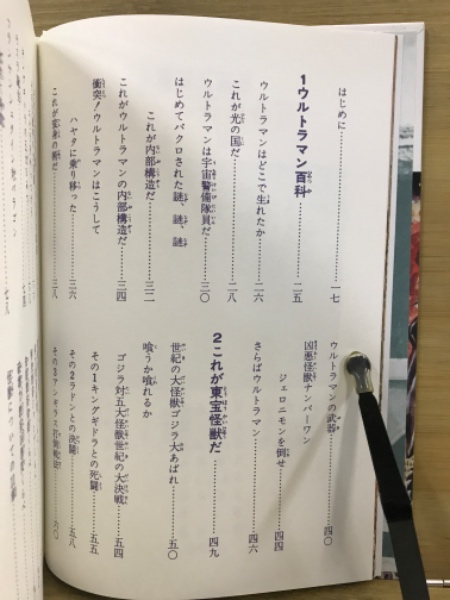 はじめに……一七
1 ウルトラマン百科……二五
ウルトラマンはどこで生れたか……二六
これが光の国だ……二八
ウルトラマンは宇宙警備隊員だ……三〇
はじめてバクロされた謎、謎、謎
これが内部構造だ……三二
これがウルトラマンの内部構造だ……三四
衝突!ウルトラマンはこうして
ハヤタに乗り移った……三六
三八
ウルトラマンの武器……四〇
凶悪怪獣ナンバーワン
ジェロニモンを倒せ……四四
さらばウルトラマン……四六
2 これが東宝怪獣だ……四九
世紀の大怪獣ゴジラ大あばれ……五〇
喰うか喰れるか
ゴジラ対五大怪獣世紀の大決戦……五四
その1キングギドラとの死闘……五五
その2ラドンとの決闘……五八
その3アンギラス……六〇